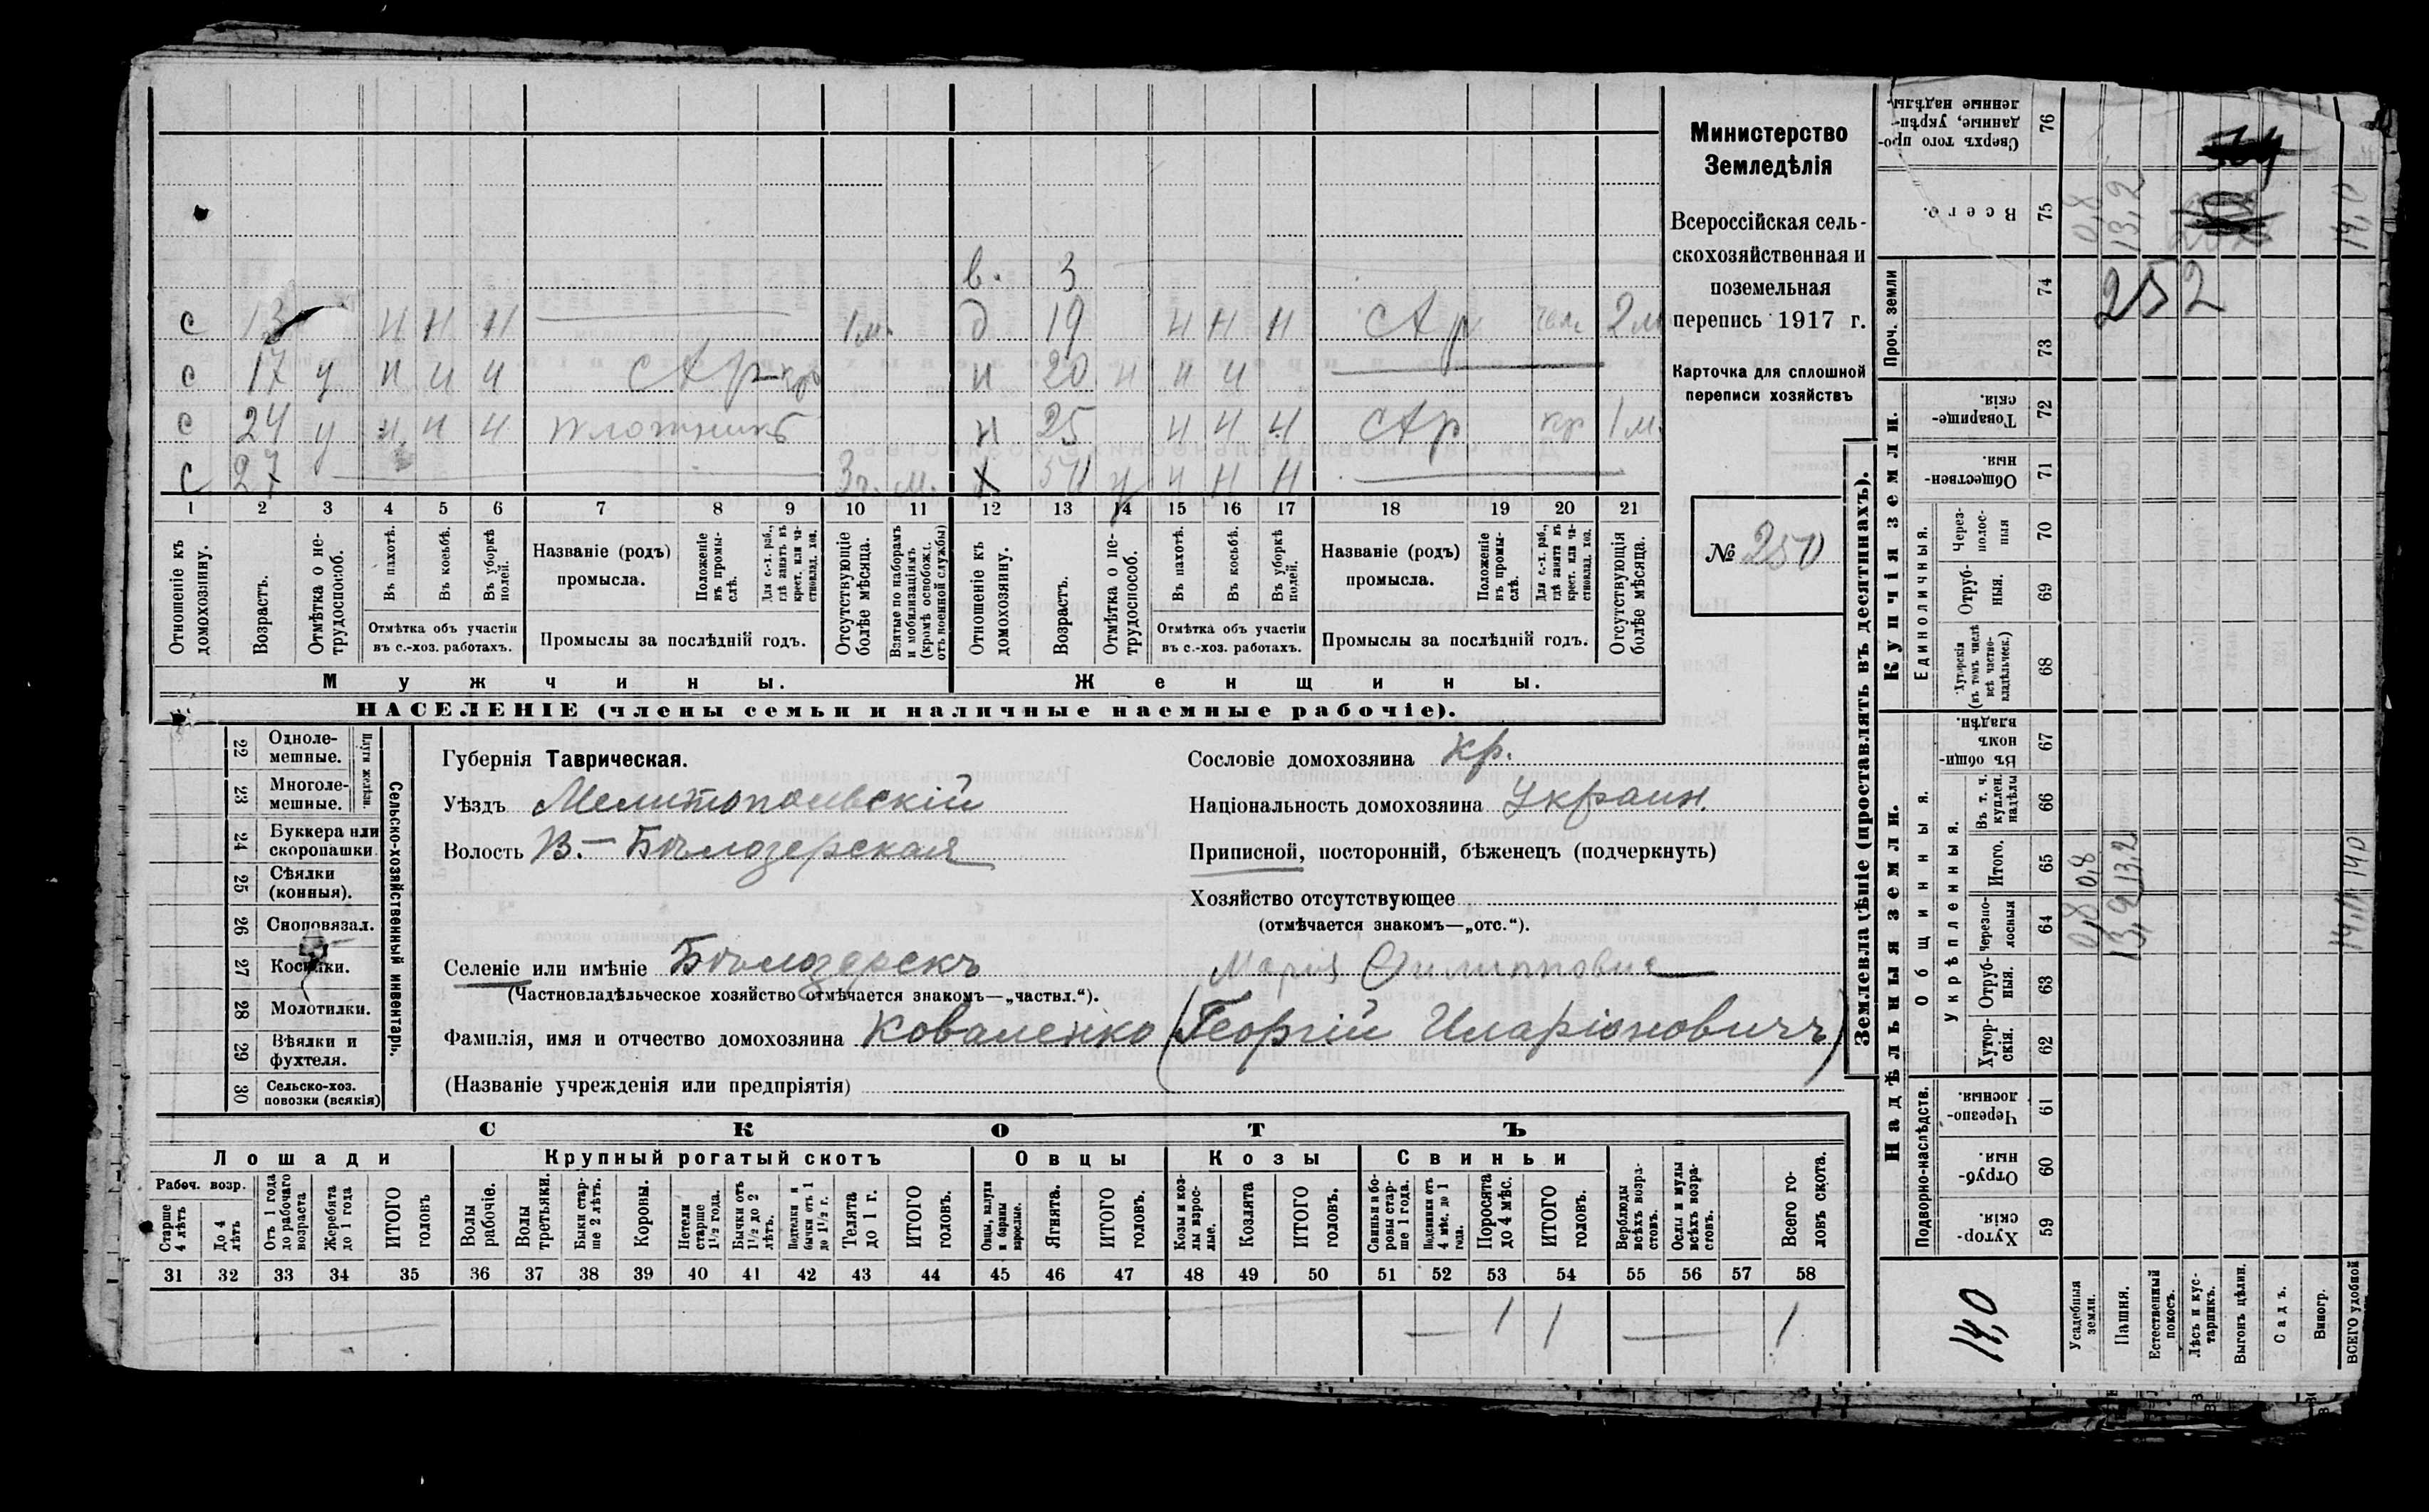 Министерство
Земледѣлія
Всероссійская сель-
скохозяйственная и
поземельная
перепись 1917 г.
Карточка для сплошной
переписи хозяйствъ
№ 250
в. 3
с 13 н н н 1 м. д 19 н н н САр 2 м
с 17 у н н н САр кр н 20 н н н
с 24 у н н н плотникъ н 25 н н н САр кр 1 м.
с 27 3 г. м. х 50 у н н н
1 2 3 4 5 6 7 8 9 10 11 12 13 14 15 16 17 18 19 20 21
Отношеніе къ домохозяину.
Возрастъ.
Отмѣтка о не-трудоспособ.
Въ пахотѣ.
Въ косьбѣ.
Въ уборкѣ полей.
Отмѣтка объ участіи въ с.-хоз. работахъ.
Названіе (родъ) промысла.
Положеніе въ промы-слѣ.
Для с.-х. раб., гдѣ занятъ въ крест. или ча-стновлад. хоз.
Промыслы за послѣдній годъ.
Отсутствующіе болѣе мѣсяца.
Взятые по наборамъ и мобилизаціямъ (кромѣ освобожд. отъ военной службы)
Отношеніе къ домохозяину.
Возрастъ.
Отмѣтка о не-трудоспособ.
Въ пахотѣ.
Въ косьбѣ.
Въ уборкѣ полей.
Отмѣтка объ участіи въ с.-хоз. работахъ.
Названіе (родъ) промысла.
Положеніе въ промы-слѣ.
Для с.-х. раб., гдѣ занята въ крест. или ча-стновлад. хоз.
Промыслы за послѣдній годъ.
Отсутствующія болѣе мѣсяца.
Мужчины. Женщины.
НАСЕЛЕНІЕ (члены семьи и наличные наемные рабочіе).
Сельско-хозяйственный инвентарь.
Плуги желѣзн.
22 Одноле-мешные.
23 Многоле-мешные.
24 Буккера или скоропашки
25 Сѣялки (конныя).
26 Сноповязал.
27 Косилки.
28 Молотилки.
29 Вѣялки и фухтеля.
30 Сельско-хоз. повозки (всякія)
Губернія Таврическая.
Уѣздъ Мелитопольскій
Волость В.-Бѣлозерская
Селеніе или имѣніе Бѣлозерскъ
(Частновладѣльческое хозяйство отмѣчается знакомъ—„частвл.“).
Сословіе домохозяина кр.
Національность домохозяина Украин.
Приписной, посторонній, бѣженецъ (подчеркнуть)
Хозяйство отсутствующее
(отмѣчается знакомъ—„отс.“).
Марія Филипповна
Фамилія, имя и отчество домохозяина Коваленко (Георгій Иларіоновичъ)
(Названіе учрежденія или предпріятія)
СКОТЪ
Лошади Крупный рогатый скотъ Овцы Козы Свиньи
Рабоч. возр.
Старше 4 лѣтъ
До 4 лѣтъ
Отъ 1 года до рабочаго возраста
Жеребята до 1 года
ИТОГО головъ
Волы рабочіе.
Волы третьяки.
Быки стар-ше 2 лѣтъ.
Коровы.
Нетели старше 1½ года.
Бычки отъ 1½ до 2 лѣтъ.
Подтелки и бычки отъ 1 до 1½ г.
Телята до 1 г.
ИТОГО головъ.
Овцы, валухи и бараны взрослые.
Ягнята.
ИТОГО головъ.
Козы и коз-лы взрос-лые.
Козлята
ИТОГО головъ.
Свиньи и бо-ровы стар-ше 1 года.
Подсвинки отъ 4 мѣс. до 1 года.
Поросята до 4 мѣс.
ИТОГО головъ.
Верблюды всѣхъ возра-стовъ.
Ослы и мулы всѣхъ возра-стовъ.
Всего го-ловъ скота.
31 32 33 34 35 36 37 38 39 40 41 42 43 44 45 46 47 48 49 50 51 52 53 54 55 56 57 58
— 1 1 — 1
Землевладѣніе (проставлять въ десятинахъ).
Надѣльныя земли. Купчія земли. Проч. земли
Подворно-наслѣдств.
Общинныя.
Укрѣпленныя.
Единоличныя.
Хутор-скія. 59
Отруб-ныя. 60
Черезпо-лосныя. 61
Хутор-скія. 62
Отруб-ныя. 63
Черезпо-лосныя 64
Итого. 65
Въ т. ч. куплен. надѣлы 66
Въ общин-номъ владѣн. 67
Хуторскія (въ томъ числѣ всѣ частно-владѣльческ.) 68
Отруб-ныя. 69
Через-полос-ныя 70
Обществен-ныя. 71
Товарище-скія. 72
73
74
Всего. 75
Сверхъ того про-данные, укрѣп-ленные надѣлы 76
14,0
Усадебныя земли. 0,8 0,8 0,8
Пашня. 13,2 13,2
Естественный покосъ.
Лѣсъ и кус-тарникъ.
Выгонъ цѣлин.
Садъ.
Виногр.
ВСЕГО удобной 14,0 14,0
252